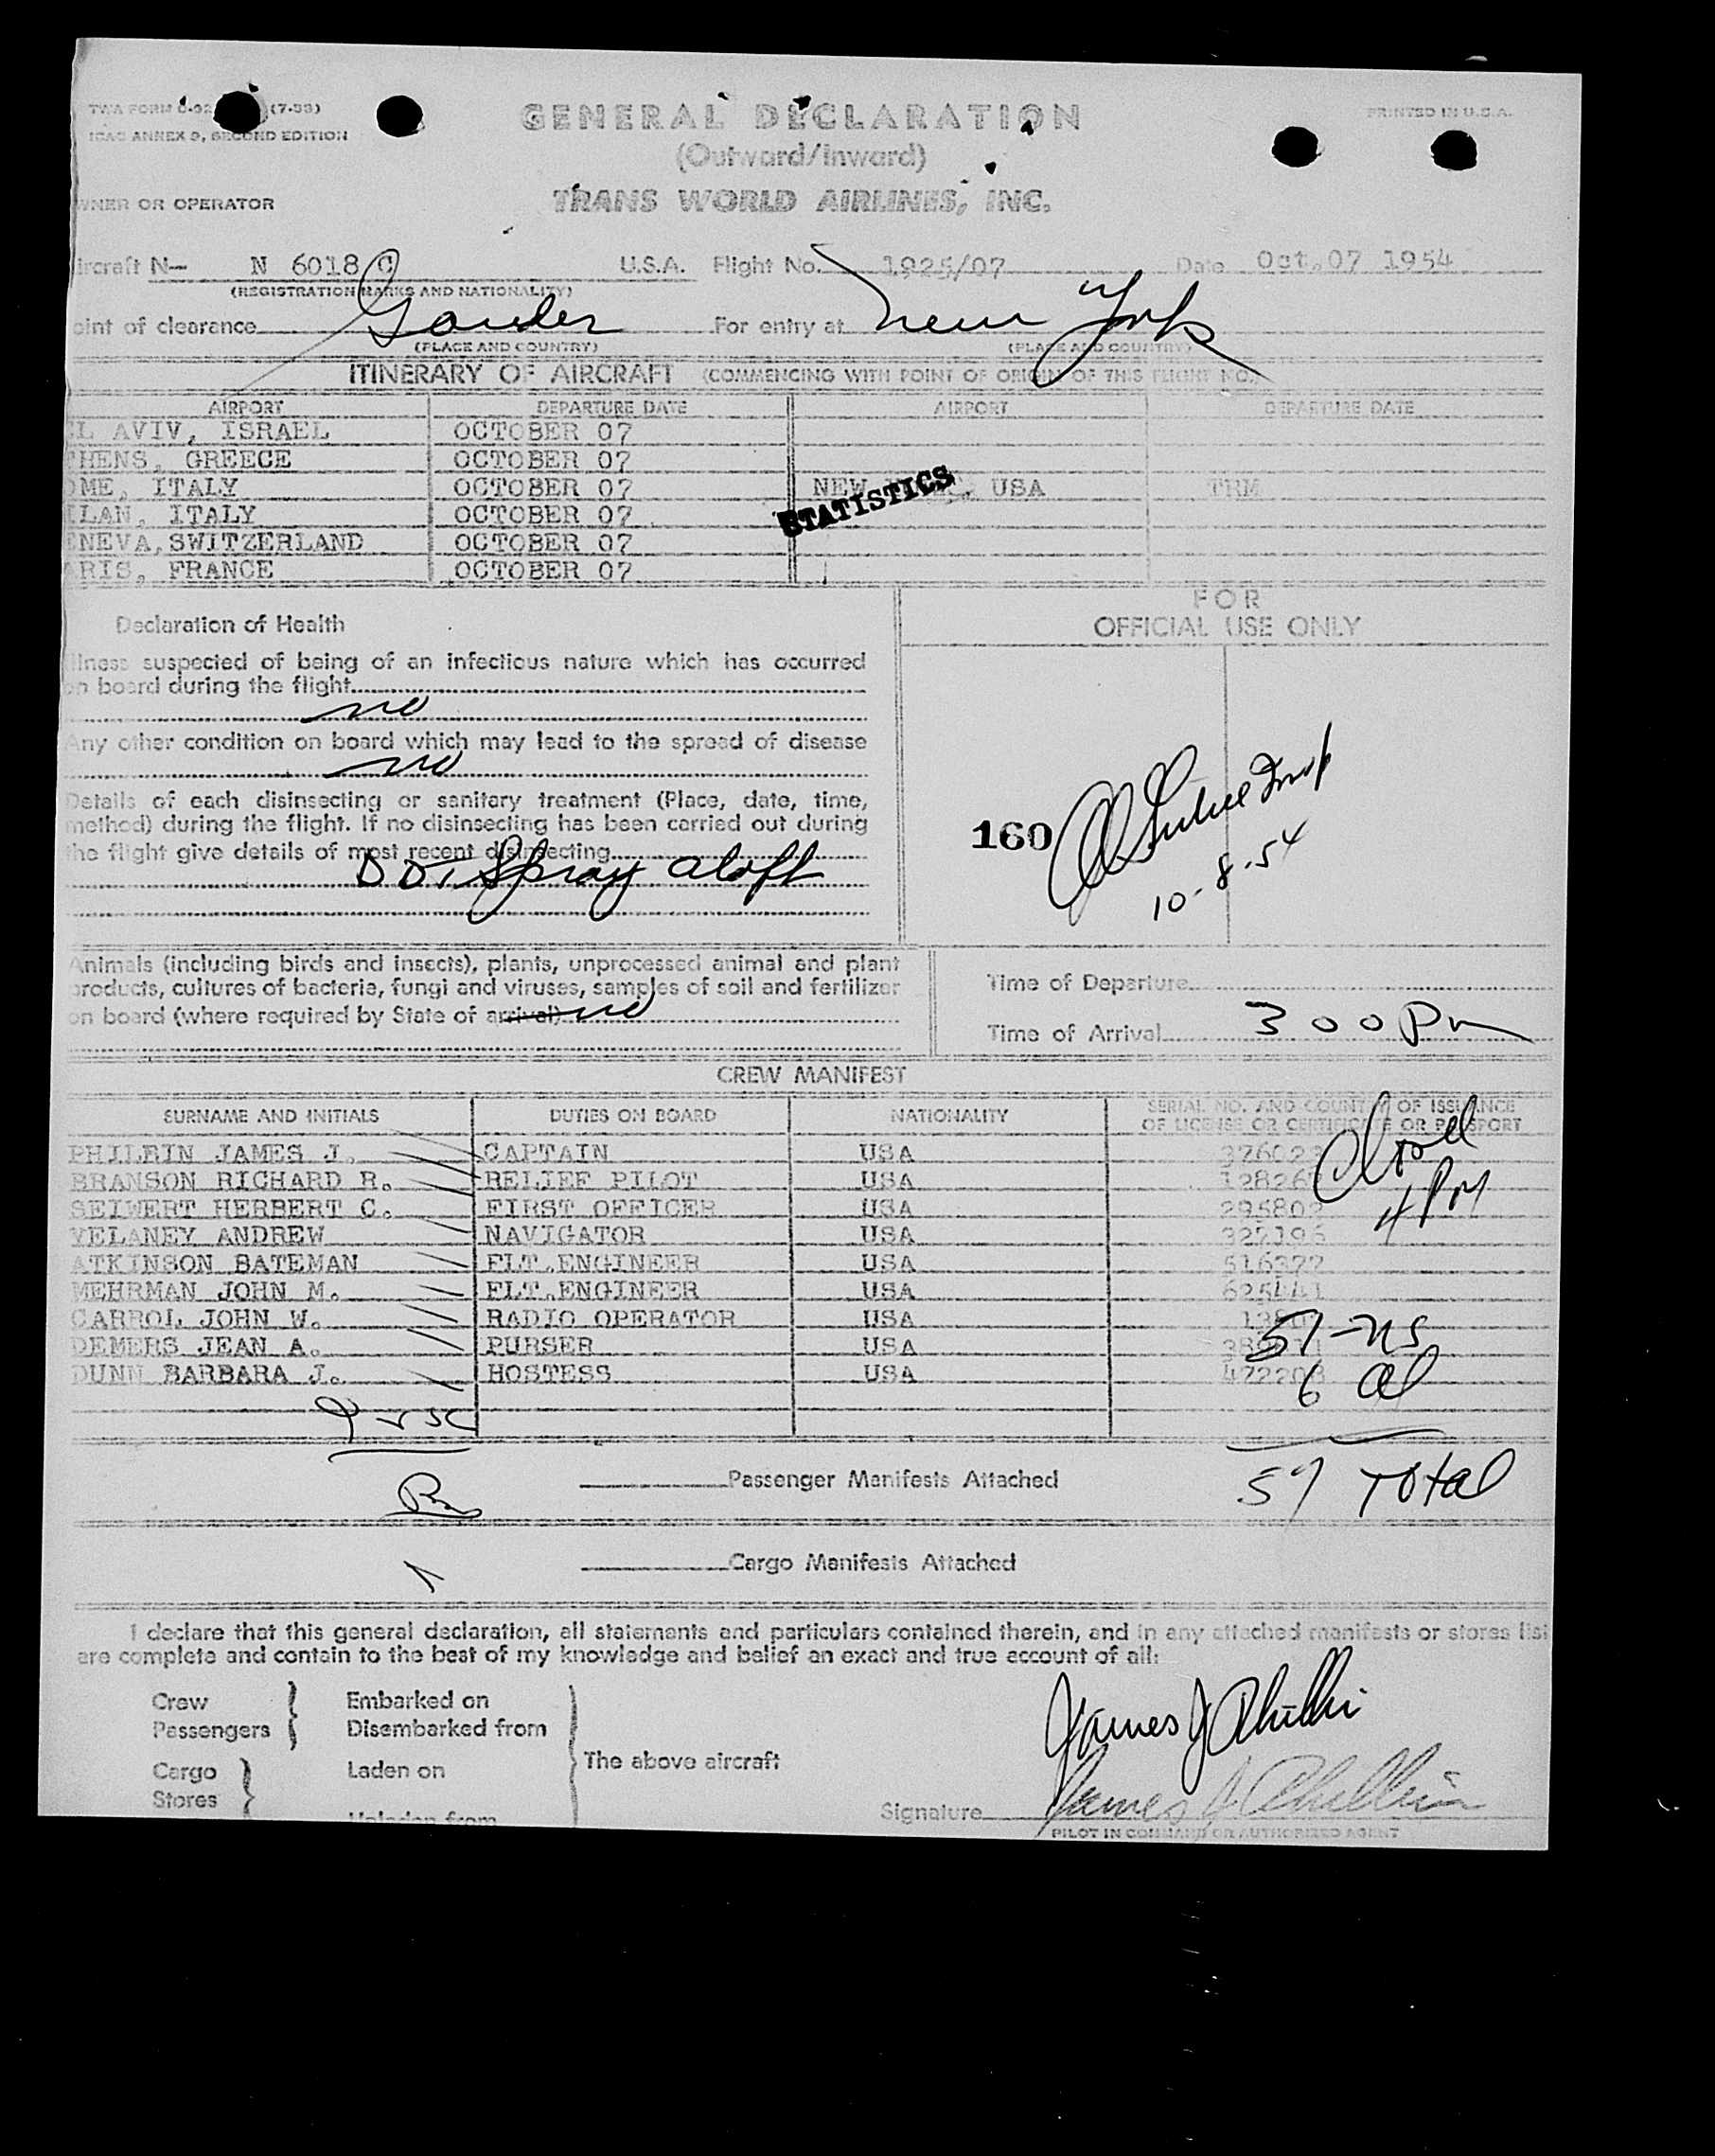 TWA FORM (7-53)
ICAO ANNEX 9, SECOND EDITION
GENERAL DECLARATION
PRINTED IN U.S.A.
(Outward/Inward)
WNER OR OPERATOR
TRANS WORLD AIRLINES, INC.
ircraft N— N 6018 C U.S.A. Flight No. 1925/07 Date Oct. 07 1954
(REGISTRATION MARKS AND NATIONALITY)
oint of clearance Gander For entry at New York
(PLACE AND COUNTRY) (PLACE AND COUNTRY)
ITINERARY OF AIRCRAFT (COMMENCING WITH POINT OF ORIGIN OF THIS FLIGHT NO.)
AIRPORT DEPARTURE DATE AIRPORT DEPARTURE DATE
EL AVIV, ISRAEL OCTOBER 07
THENS, GREECE OCTOBER 07
OME, ITALY OCTOBER 07 NEW USA TRM
STATISTICS
ILAN, ITALY OCTOBER 07
ENEVA, SWITZERLAND OCTOBER 07
ARIS, FRANCE OCTOBER 07
FOR
OFFICIAL USE ONLY
Declaration of Health
llness suspected of being of an infectious nature which has occurred
on board during the flight
no
Any other condition on board which may lead to the spread of disease
no
Details of each disinsecting or sanitary treatment (Place, date, time,
method) during the flight. If no disinsecting has been carried out during
the flight give details of most recent disinsecting
DDT Spray aloft
160
10-8-54
Animals (including birds and insects), plants, unprocessed animal and plant
products, cultures of bacteria, fungi and viruses, samples of soil and fertilizer
on board (where required by State of arrival) no
Time of Departure
Time of Arrival 3 00 Pm
CREW MANIFEST
SURNAME AND INITIALS DUTIES ON BOARD NATIONALITY SERIAL NO. AND COUNTRY OF ISSUANCE
OF LICENSE OR CERTIFICATE OR PASSPORT
PHILBIN JAMES J. CAPTAIN USA
BRANSON RICHARD R. RELIEF PILOT USA
4 PM
SEIWERT HERBERT C. FIRST OFFICER USA
VELANEY ANDREW NAVIGATOR USA 327196
ATKINSON BATEMAN FLT.ENGINEER USA 516377
MEHRMAN JOHN M. FLT.ENGINEER USA 625441
CARROL JOHN W. RADIO OPERATOR USA
DEMERS JEAN A. PURSER USA
DUNN BARBARA J. HOSTESS USA
51 - US
6 al
57 Total
Passenger Manifests Attached
1
Cargo Manifests Attached
I declare that this general declaration, all statements and particulars contained therein, and in any attached manifests or stores list
are complete and contain to the best of my knowledge and belief an exact and true account of all:
Crew Embarked on
Passengers Disembarked from
The above aircraft
Cargo Laden on
Stores Unladen from
James J Philbin
Signature James J Philbin
PILOT IN COMMAND OR AUTHORIZED AGENT